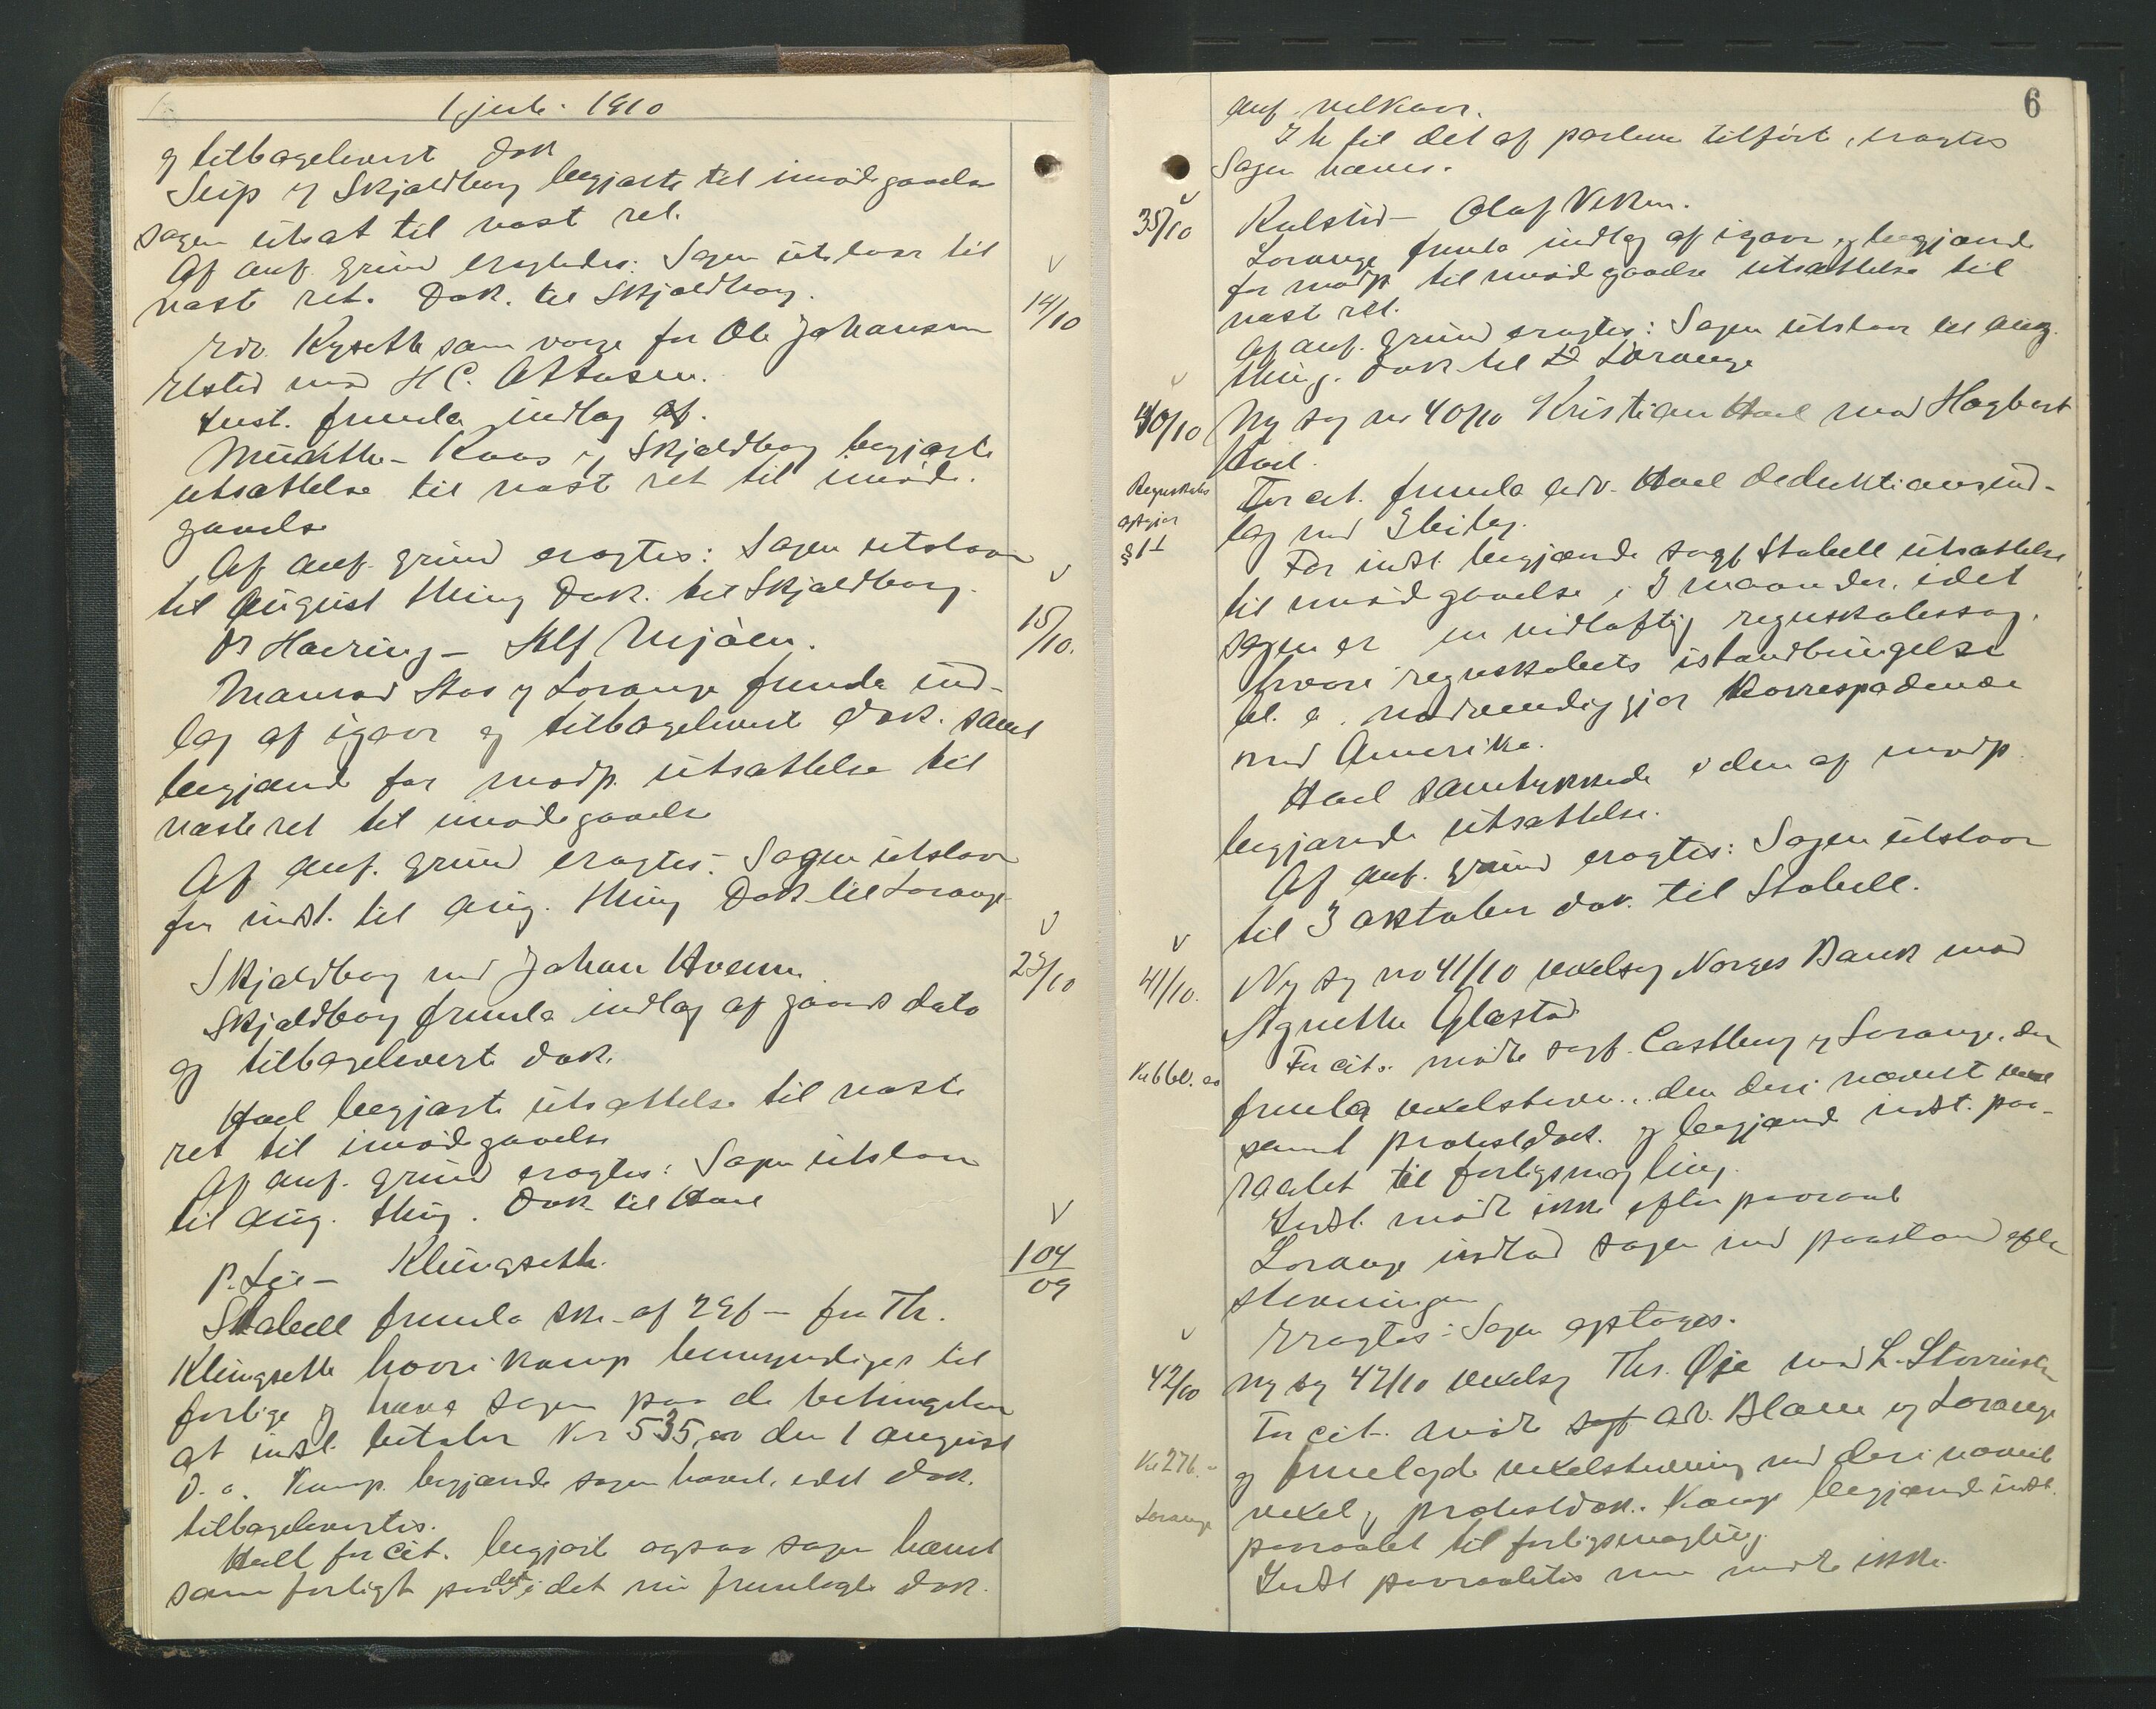 1 juli 1910
og tilbageleverte dok
Seip og Skjaldborg begjærte til imødegaaelse
sagen utsat til næste ret.
Af anf. grund eragtedes: Sagen utstaar til
næste ret. Dok. til Skjaldborg.
14/10
Adv. Kyseth som verge for Ole Johansen
Ulstad mod H C. Attusen.
Inst. fremla indlæg af.
Münster-Kaas og Skjaldborg begjærte
utsættelse til næste ret til imøde-
gaaelse
Af anf. grund eragtes: Sagen utstaar
til August thing Dok. til Skjaldborg.
15/10.
Hæring – Alf Mjøen.
Manrad Aas og Lorange fremla ind-
læg af igaar og tilbageleverte dok. samt
begjærede for modp. utsættelse til
næste ret til imødegaaelse
Af anf. grund eragtes: Sagen utstaar
for indst. til aug. thing Dok til Lorange
23/10
Skjaldborg mod Johan Hveem
Skjaldborg fremla indlæg af gaars dato
og tilbageleverte dok.
Hoel begjærte utsættelse til næste
ret til imødegaaelse
Af anf. grund eragtes: Sagen utstaar
til aug. thing. Dok til Hoel
104/09
P. Lie – Klungseth.
Stabell fremla skr. af 29/6 – fra Th.
Klungseth hvori komp bemyndiges til
forlige og hæve sagen paa de betingelser
at indst. betaler Kr 535,00 den 1 august
d. a. Komp. begjærede sagen hævet, idet dok.
tilbageleveres.
Hoel for cit. begjærte ogsaa sagen hævet
som forligt paa det i det nu fremlagte dok.
6
anf. vilkaar.
I h til det af parterne tilførte, eragtes
Sagen hæves.
35/10
Kulstad – Olaf Viken.
Lorange fremla indlæg af igaar og begjærede
for modp til imødegaaelse utsættelse til
næste ret.
Af anf. grund eragtes: Sagen utstaar til aug.
thing. Dok til Lorange
40/10
Ny sag no 40/10 Kristian Hoel mod Hagbart
Hoel.
Regnskabs
opgjør
§ 11
For cit. fremla adv. Hoel deduktionsind-
læg med 3 bilag.
For indst. begjærede sagf. Stabell utsættelse
til imødegaaelse i 3 maaneder, idet
sagen er en vidløftig regnskabssag,
hvori regnskabets istandbringelse
bl. a. nødvendiggjør korrespodence
med Amerika.
Hoel samtykkede i den af modp.
begjærede utsættelse.
Af anf. grund eragtes: Sagen utstaar
til 3 oktober dok. til Stabell.
41/10.
Ny sag no 41/10 vexelsag Norges Bank mod
Agnethe Glæstad
For cit. mødte sagf. Castberg og Lorange, der
fremla vexelstevn., den deri nævnte vexel
samt protestdok. og begjærede indst. paa-
raabt til forligsmægling.
Indst. mødte ikke efter paaraab
Lorange indlod sagen med paastand efter
stevningen
Eragtes: Sagen optages.
42/10
Ny sag 42/10 vexelsag Ths. Øje mod L. Storrusten
For cit. mødte sagf adv. Blom og Lorange
Kr 276.–
og fremlagde vexelstevning med deri nævnte
Lorange
vexel og protestdok. Komp begjærede indst.
paaraabt til forligsmægling.
Indst paaraabtes men mødte ikke.